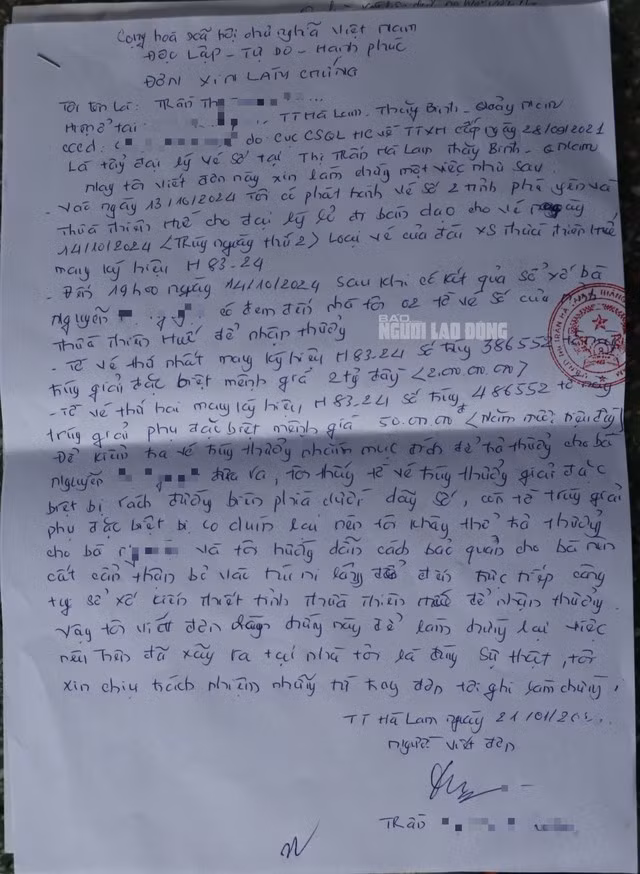 Cộng hoà xã hội chủ nghĩa Việt Nam
Độc Lập - Tự Do - Hạnh phúc
ĐƠN XIN LÀM CHỨNG
Tôi tên là: Trần Th
Hiện ở tại TT Hà Lam - Thăng Bình - Quảng Nam
cccd: c do cục CSQL HC về TTXH cấp ngày 28/09/2021
Là tổng đại lý vé số tại Thị Trấn Hà Lam Thăng Bình - Q Nam
Nay tôi viết đơn này xin làm chứng một việc như sau
- Vào ngày 13/10/2024 Tôi có phát hành vé số 2 tỉnh phú yên và
Thừa thiên Huế cho đại lý lẻ đi bán dạo cho vé ngày
14/10/2024 <Trúng ngày thứ 2> Loại vé của đài XS Thừa thiên Huế
mang ký hiệu H 83-24
- Đến 19h00 ngày 14/10/2024 sau khi có kết quả sổ xố bà
Nguyễn có đem đến nhà tôi 02 tờ vé số của
Thừa thiên Huế để nhận thưởng
BÁO NGƯỜI LAO ĐỘNG
- Tờ vé thứ nhất mang ký hiệu H 83-24 số trúng 386552
trúng giải đặc biệt mệnh giá 2 tỷ đồng <2.000.000.000>
- Tờ vé thứ hai mang ký hiệu H 83-24 số trúng 486552 tờ này
trúng giải phụ đặc biệt mệnh giá 50.000.000đ <Năm mươi triệu đồng>
Để kiểm tra vé trúng thưởng nhằm mục đích để trả thưởng cho bà
Nguyễn đưa ra, tôn thấy tờ vé trúng thưởng giải đặc
biệt bị rách đường biên phía dưới dãy số, còn tờ trúng giải
phụ đặc biệt bị co dúm lại nên tôi không thể trả thưởng
cho bà và tôi hướng dẫn cách bảo quản cho bà nên
cất cẩn thận bỏ vào túi ni lông để đến trực tiếp công
ty sổ xố kiến thiết tỉnh Thừa Thiên Huế để nhận thưởng.
Vậy tôi viết đơn làm chứng này để làm chứng lại việc
nêu trên đã xảy ra tại nhà tôi là đúng sự thật, tôi
xin chịu trách nhiệm những từ trong đơn tôi ghi làm chứng.
TT Hà Lam ngày 21/01/20
người viết đơn
Trần